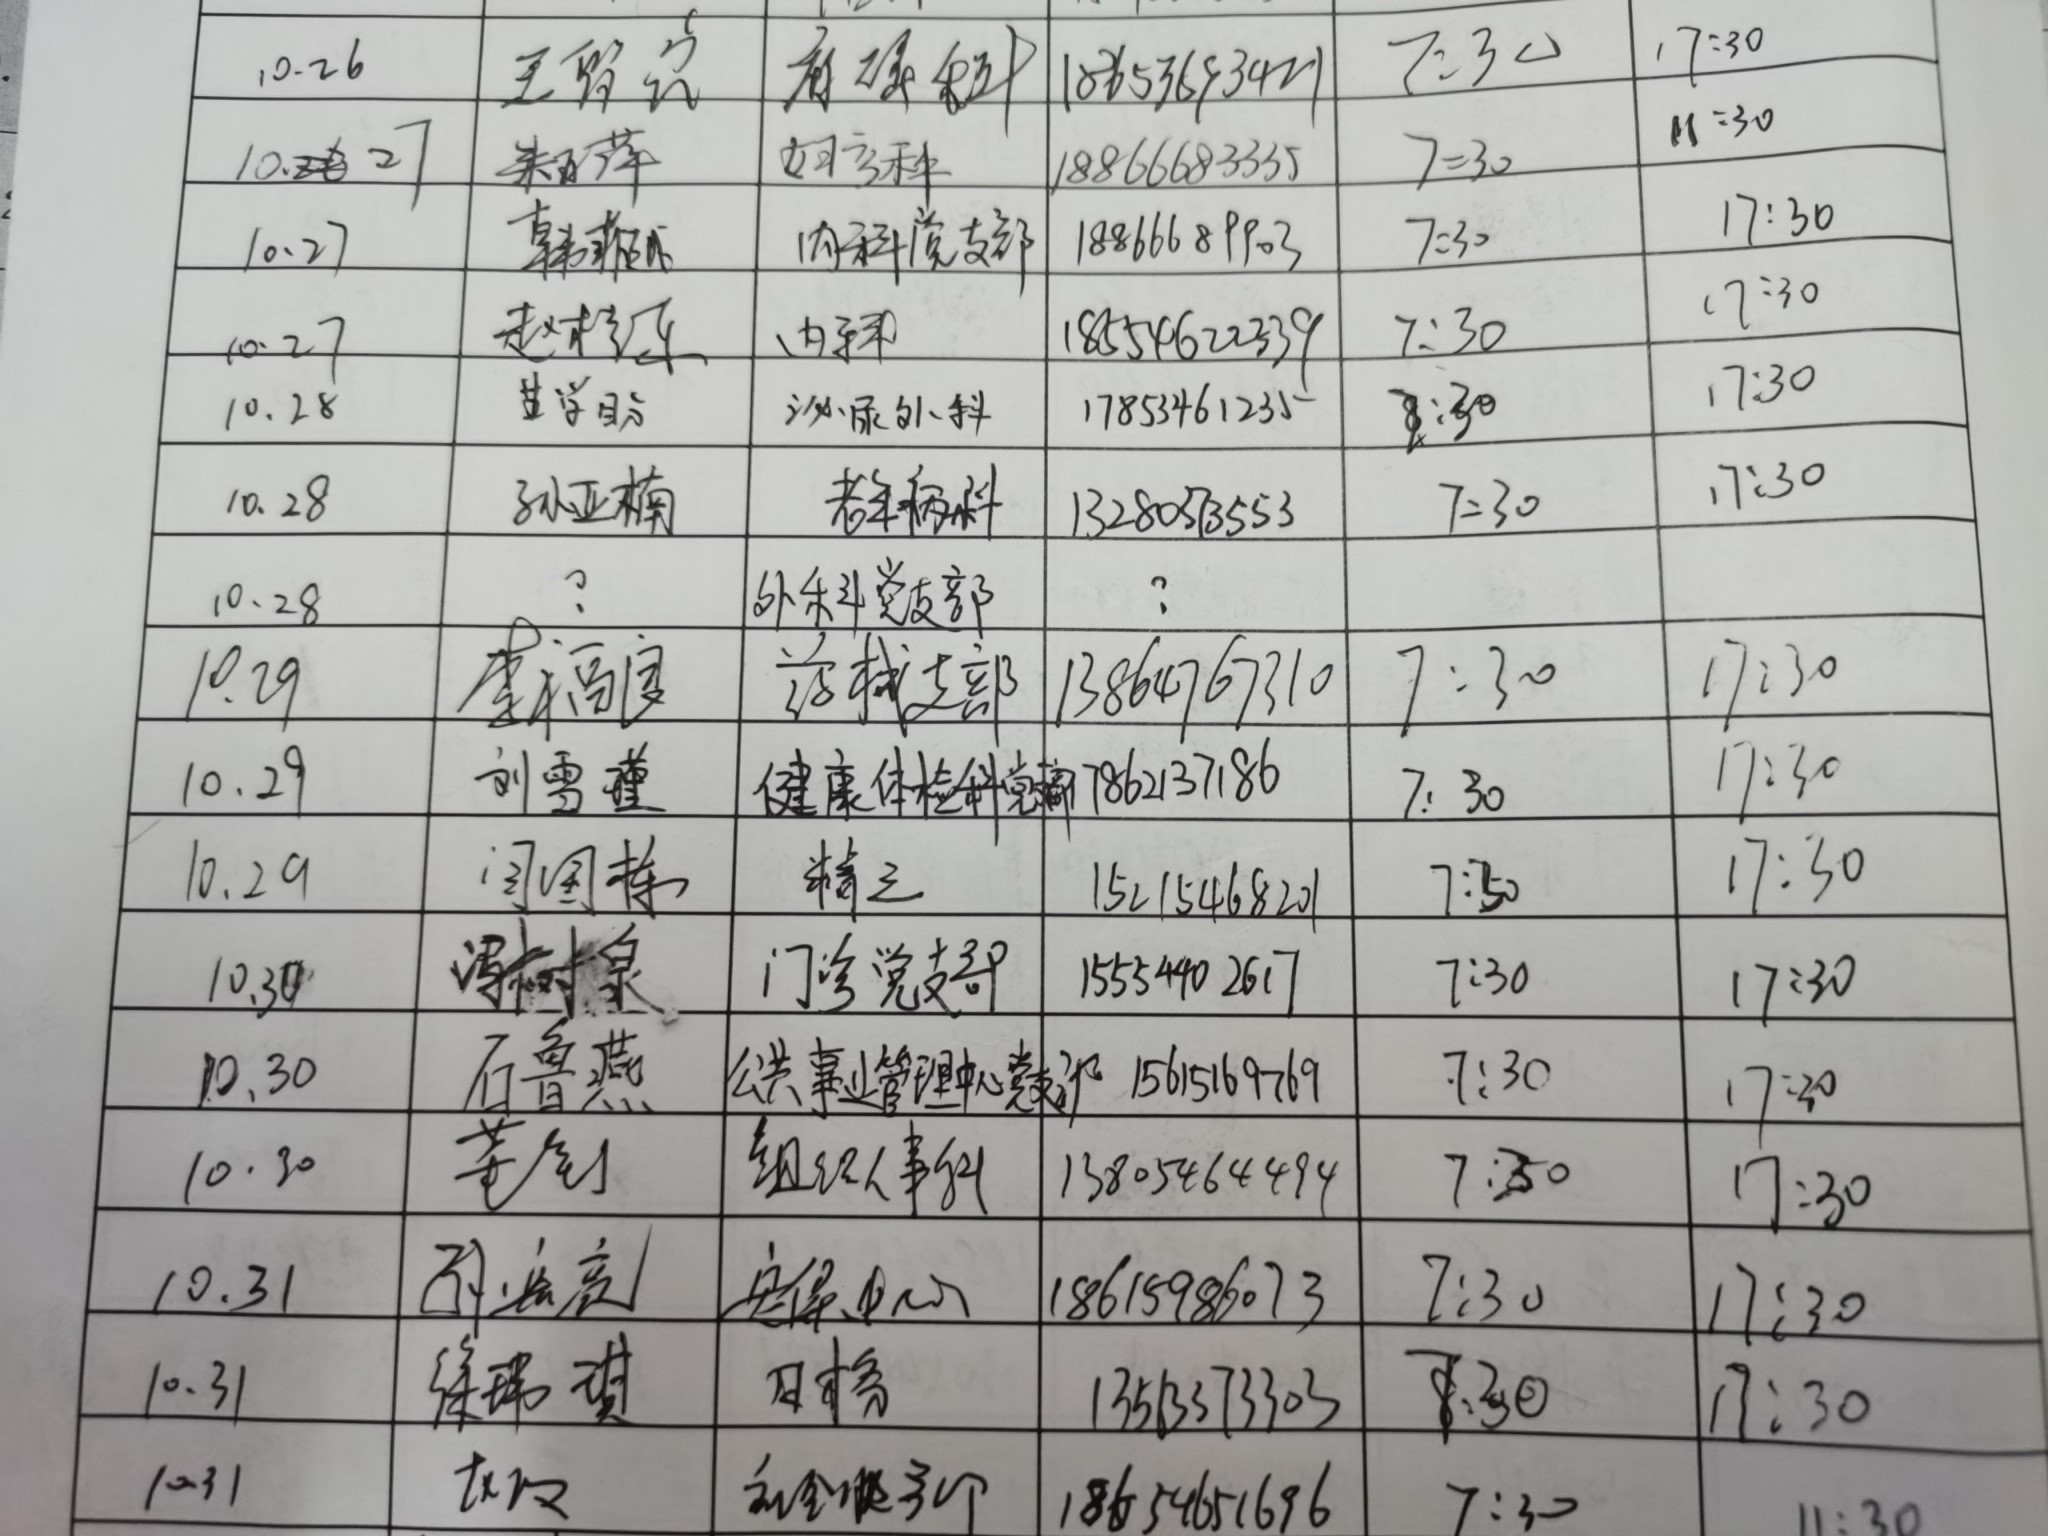 10.26 王 18653693421 7:30 17:30
10.27 朱 萍 妇产科 18866683335 7:30 11:30
10.27 韩 内科党支部 18866689903 7:30 17:30
10.27 赵 内科 18554622339 7:30 17:30
10.28 泌尿外科 17853461235 7:30 17:30
10.28 孙亚楠 老年病科 13280373553 7:30 17:30
10.28 ? 外科党支部 ?
10.29 李福 药械支部 13864767310 7:30 17:30
10.29 刘雪瑾 健康体检科党支部 17862137186 7:30 17:30
10.29 闫国栋 精三 15215468201 7:30 17:30
10.30 冯树泉 门诊党支部 15554402617 7:30 17:30
10.30 石鲁燕 公共事业管理中心党支部 15615169769 7:30 17:30
10.30 组织人事科 13805464494 7:30 17:30
10.31 中心 18615986073 7:30 17:30
10.31 徐瑞琪 13513373303 7:30 17:30
10.31 18654651696 7:30 11:30